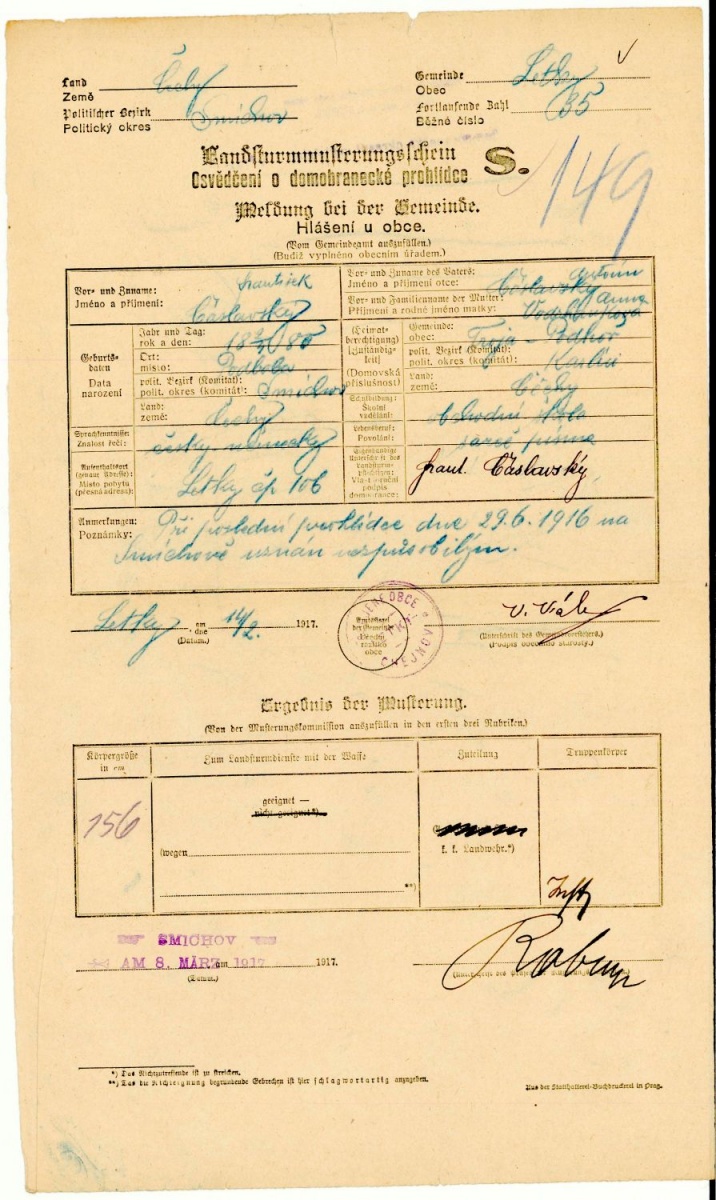 Land
Země Čechy
Politischer Bezirk
Politický okres Smíchov
Gemeinde
Obec Letky
Fortlaufende Zahl
Běžné číslo 35
149
Landsturmmusterungsschein S.
Osvědčení o domobranecké prohlídce
Meldung bei der Gemeinde.
Hlášení u obce.
(Vom Gemeindeamt auszufüllen.)
(Budiž vyplněno obecním úřadem.)
Vor- und Zuname:
Jméno a příjmení:
František
Čáslavský
Vor- und Zuname des Vaters:
Jméno a příjmení otce:
Antonín
Čáslavský
Vor- und Familienname der Mutter:
Příjmení a rodné jméno matky:
Anna
Geburts-
daten
Data
narození
Jahr und Tag:
rok a den:
Ort:
místo:
polit. Bezirk (Komitat):
polit. okres (komitát): Smíchov
Land:
země: Čechy
(Heimat-
berechtigung)
[Zuständig-
keit]
(Domovská
příslušnost)
Gemeinde:
obec: Troja - Podhoř
polit. Bezirk (Komitat):
polit. okres (komitát): Karlín
Land:
země: Čechy
Schulbildung:
Školní
vzdělání:
obchodní škola
Sprachkenntnisse:
Znalost řečí:
česky německy
Lebensberuf:
Povolání:
Aufenthaltsort
(genaue Adresse):
Místo pobytu
(přesná adresa):
Letky čp 106
Eigenhändige
Unterschrift des
Landsturm-
pflichtigen:
Vlastnoruční
podpis
domobrance:
Frant. Čáslavský
Anmerkungen:
Poznámky:
Při poslední prohlídce dne 29.6.1916 na
Smíchově uznán nezpůsobilým.
Letky am
dne 14/2. 1917.
(Datum.)
Amtssiegel
der Gemeinde
Úřední
razítko
obce
(Unterschrift des Gemeindevorstehers.)
(Podpis obecního starosty.)
Ergebnis der Musterung.
(Von der Musterungskommission auszufüllen in den ersten drei Rubriken.)
Körpergröße
in cm
Zum Landsturmdienste mit der Waffe
Zuteilung
Truppenkörper
156
geeignet —
nicht geeignet*)
(wegen
**)
k. k. Landwehr.*)
SMICHOV
AM 8. MÄRZ 1917
am 1917.
(Datum.)
*) Das Nichtzutreffende ist zu streichen.
**) Das die Nichteignung begründende Gebrechen ist hier schlagwortartig anzugeben.
Aus der Statthalterei-Buchdruckerei in Prag.